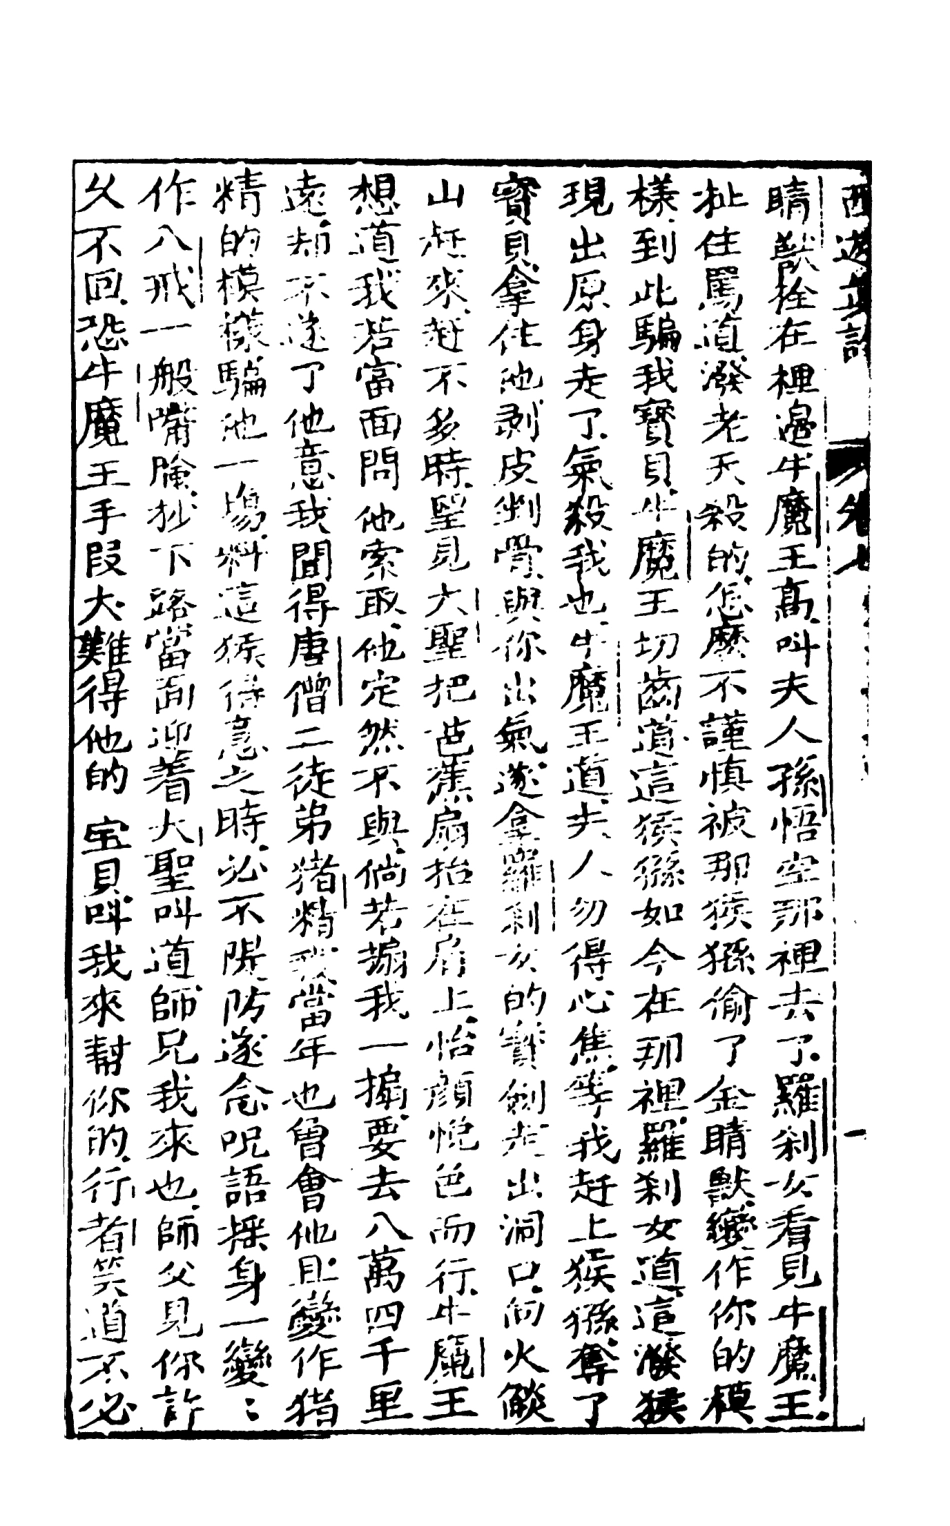 西遊真詮
卷
睛獸拴在裡邊牛魔王高叫夫人孫悟空那裡去了羅刹女看見牛魔王
扯住罵道潑老天殺的怎麽不謹慎被那猴猻偷了金睛獸變作你的模
樣到此騙我寳貝牛魔王切齒道這猴猻如今在那裡羅刹女道這潑猴
現出原身走了氣殺我也牛魔王道夫人勿得心焦等我赶上猴猻奪了
寳貝拿住他剥皮剉骨與你出氣遂拿羅刹女的寳劍走出洞口向火燄
山赶來赶不多時望見大聖把芭蕉扇抬在肩上怡顔悅色而行牛魔王
想道我若當面問他索取他定然不與倘若搧我一搧要去八萬四千里
遠却不遂了他意我聞得唐僧二徒弟猪精我當年也曾會他且變作猪
精的模樣騙他一塲料這猴得意之時必不隄防遂念呪語揺身一變〻
作八戒一般嘴臉抄下路當面迎着大聖叫道師兄我來也師父見你許
乆不回恐牛魔王手段大難得他的宝貝叫我來幇你的行者笑道不必